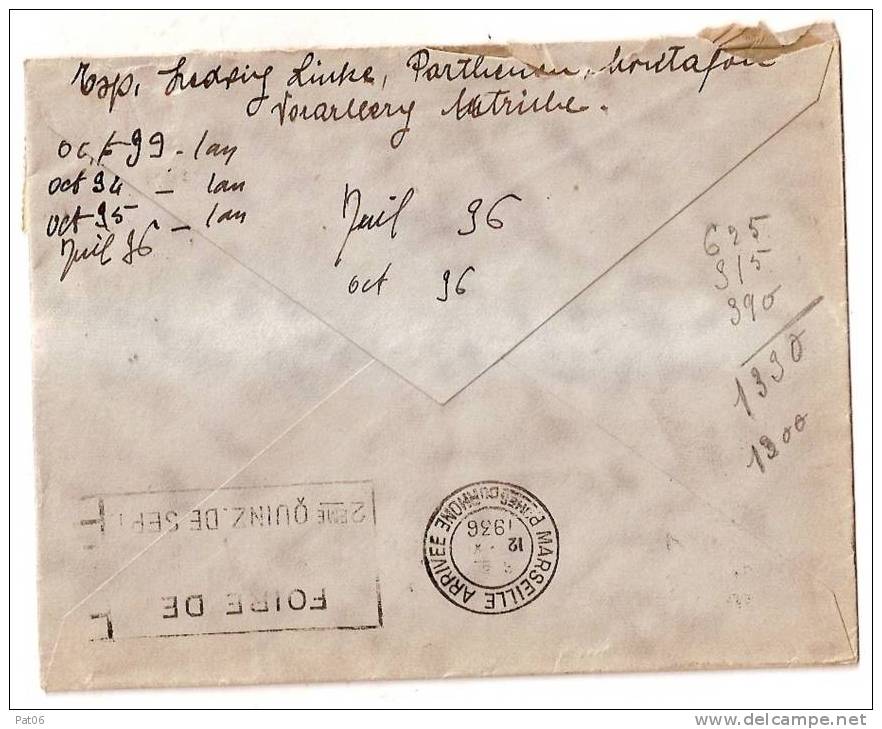 Exp, Ludwig Linke, Parthenen, Montafon
Vorarlberg Autriche.
oct 93 - 1an
oct 94 - 1an
oct 95 - 1an
Juil 96
Juil 96
oct 96
625
315
390
1330
1300
2EME QUINZ. DE SEPT
FOIRE DE
MARSEILLE ARRIVEE
BCHES DU RHONE
12
1936
Pat06
www.delcampe.net